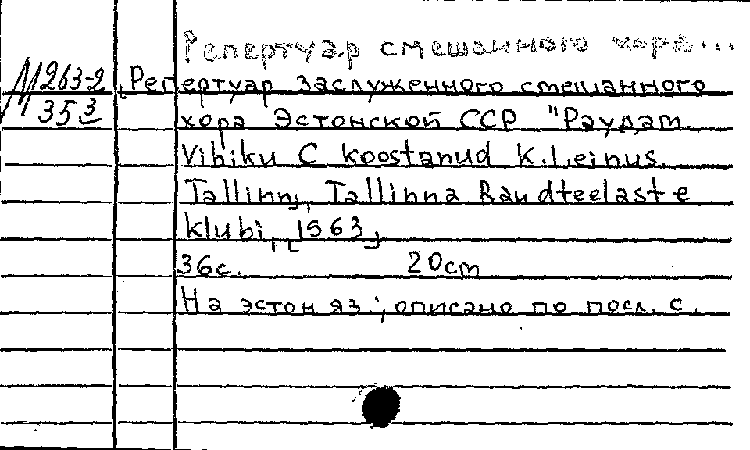 Репертуар смешанного хора...
М263-2 Репертуар заслуженного смешанного
35 3 хора Эстонской ССР "Раудам
Vihiku C koostanud K. Leinus.
Tallinn, Tallinna Raudteelaste
klubi, [1563]
36с. 20cm
На эстон яз.; описано по посл. с.